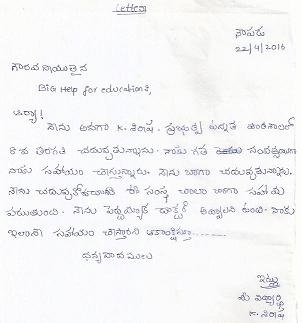 Letters
నౌపరు
22/4/2016
గౌరవనీయులైన
BIG Help for educations,
ఆర్యా!
నేను అనగా K. శిరీష. ప్రభుత్వ ఉన్నత పాఠశాలలో
8వ తరగతి చదువుతున్నాను. నాకు గత సంవత్సరంగా
సహాయం చేస్తున్నారు. నేను బాగా చదువుతున్నాను.
నేను చదువుకోవడానికి ఈ సంస్థ చాలా బాగా సహాయ
పడుతుంది. నేను పెద్దయ్యాక డాక్టర్ అవ్వాలని ఉంది. నాకు
ఇలానే సహాయం చేస్తారని ఆశిస్తూ.......
ధన్యవాదములు
ఇట్లు
మీ విద్యార్థి
K. శిరీష